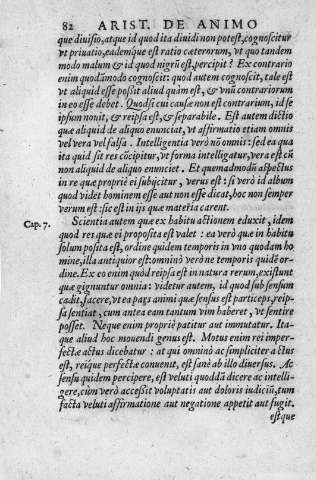 82 ARIST. DE ANIMO
que divisio, atque id quod ita dividi non potest, cognoscitur
vt privatio, eademque est ratio cæterorum, vt quo tandem
modo malum & id quod nigrũ est, percipit? Ex contrario
enim quodāmodo cognoscit: quod autem cognoscit, tale est
vt aliquid esse possit aliud quàm est, & vnũ contrariorum
in eo esse debet. Quodsi cui causæ non est contrarium, id se
ipsum novit, & reipsa est, & separabile. Est autem dictio
quæ aliquid de aliquo enunciat, vt affirmatio etiam omnis
vel vera vel falsa. Intelligentia verò nō omnis: sed ea qua
ita quid sit res cōcipitur, vt forma intelligatur, vera est cũ
non aliquid de aliquo enunciet. Et quemadmodũ aspectus
in re quæ propriè ei subjicitur, verus est: si verò id album
quod videt hominem esse aut non esse dicat, hoc non semper
verum est: sic est in ijs quæ materia carent.
Cap. 7. Scientia autem quæ ex habitu actionem eduxit, idem
quod res quæ ei proposita est valet: ea verò quæ in habitu
solum posita est, ordine quidem temporis in vno quodam ho
mine, illa antiquior est: omninò verò ne temporis quidē or-
dine. Ex eo enim quòd reipsa est in natura rerum, existunt
quæ gignuntur omnia: videtur autem, id quod sub sensum
cadit, facere, vt ea pars animi quæ sensus est particeps, reip-
sa sentiat, cum antea eam tantum vim haberet, vt sentire
posset. Neque enim propriè patitur aut immutatur. Ita-
que aliud hoc movendi genus est. Motus enim rei imper-
fectæ actus dicebatur: at qui omninò ac simpliciter actus
est, reique perfectæ convenit, est sanè ab illo diversus. Ac
sensu quidem percipere, est veluti quoddā dicere ac intelli-
gere, cùm verò accessit voluptatis aut doloris iudiciũ, tum
facta veluti affirmatione aut negatione appetit aut fugit.
estque